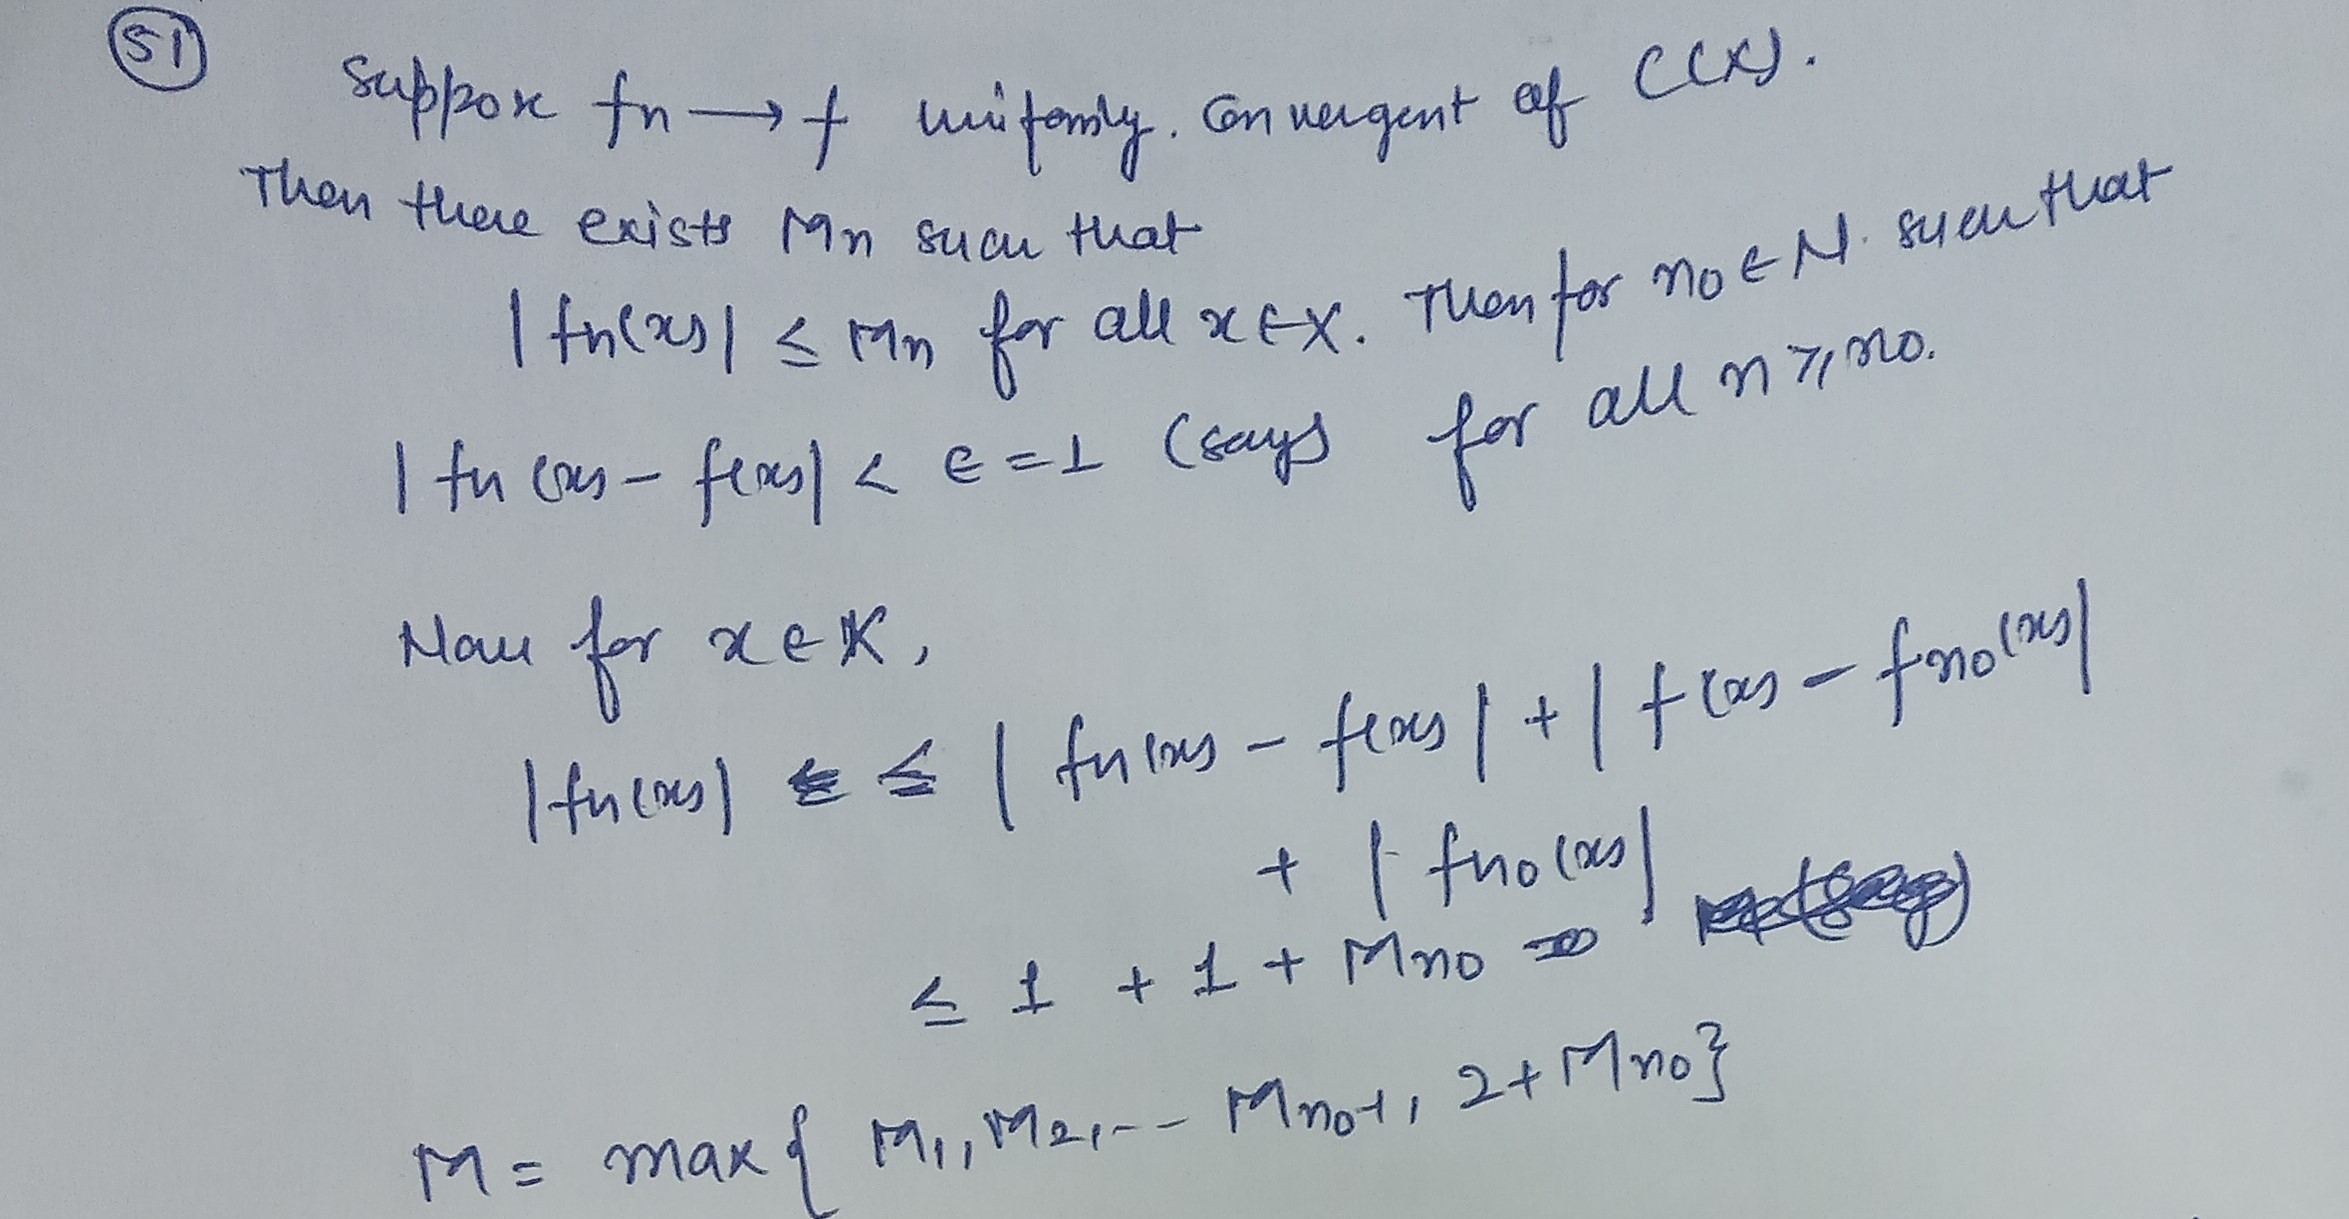 51
Suppose fn → f uniformly. Convergent of C(X).
Then there exists Mn such that
|fn(x)| ≤ Mn for all x ∈ X. Then for no ∈ N. such that
|fn(x) - f(x)| < ϵ = 1 (say) for all n ≥ no.
Now for x ∈ X,
|fn(x)| ≤ |fn(x) - f(x)| + |f(x) - fno(x)|
+ |fno(x)|
≤ 1 + 1 + Mno
M = max{M1, M2, -- Mno-1, 2 + Mno}